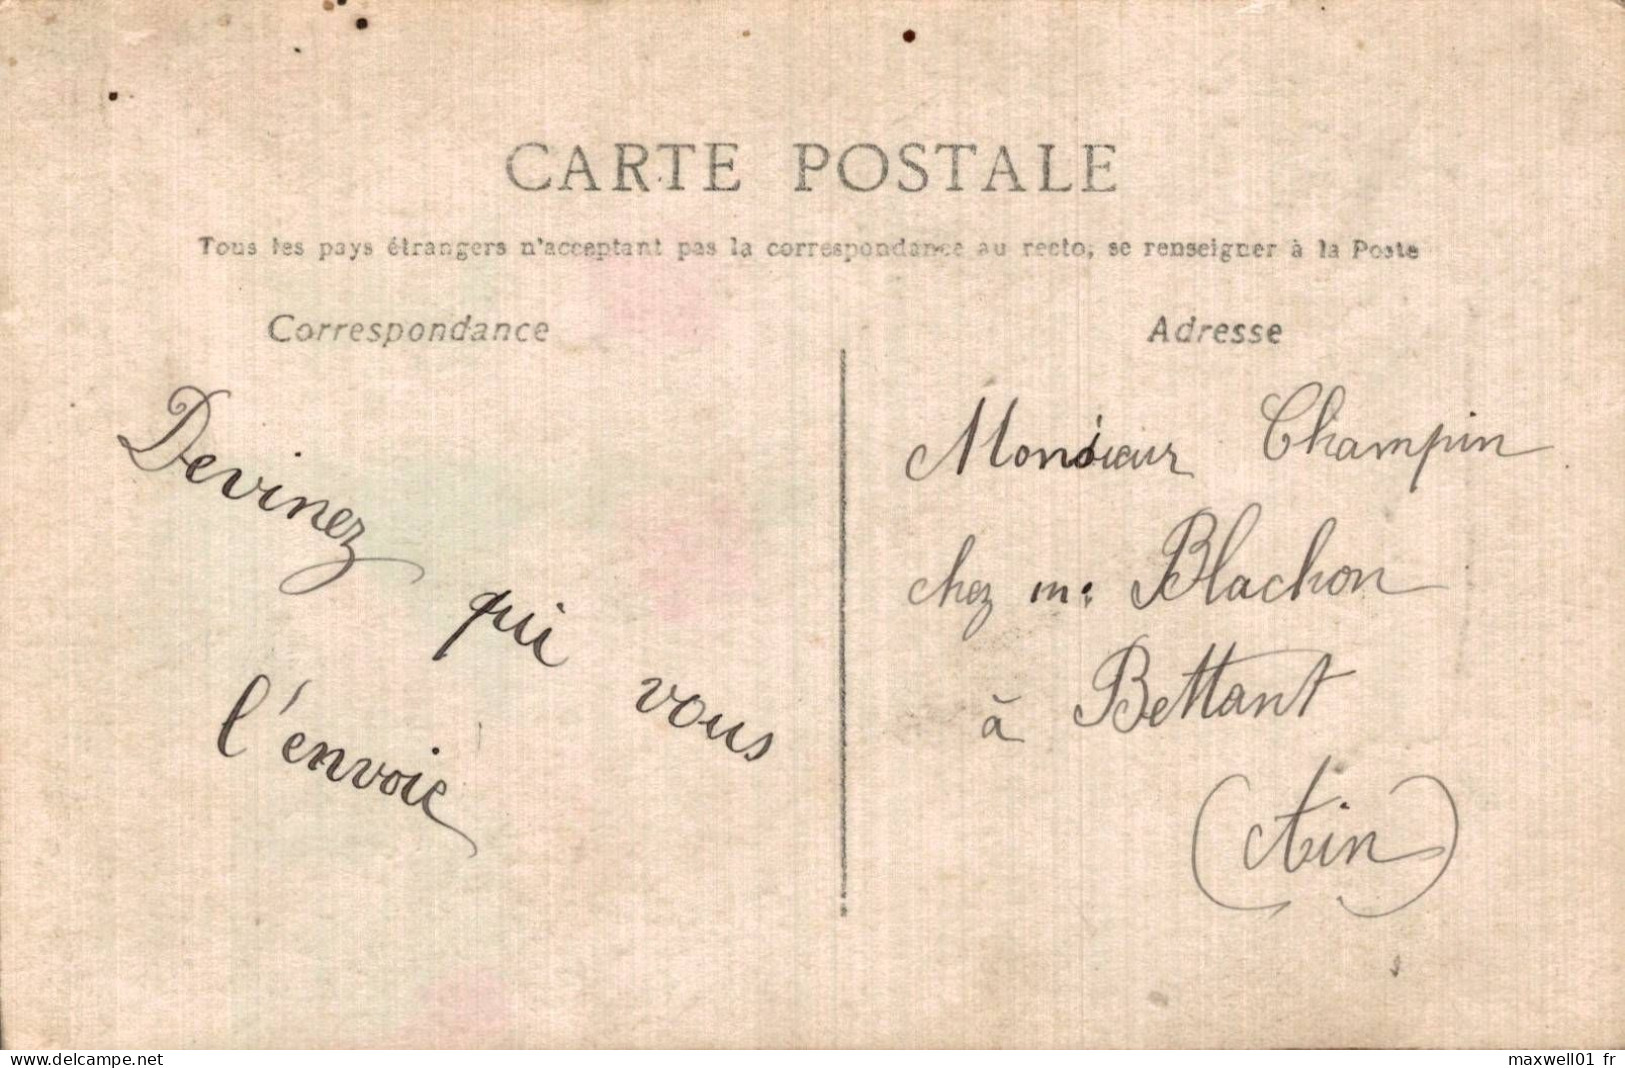 CARTE POSTALE
Tous les pays étrangers n'acceptant pas la correspondance au recto, se renseigner à la Poste
Correspondance
Devinez qui vous
l'envoie
Adresse
Monsieur Champin
chez m: Blachon
à Bettant
(Ain)
www.delcampe.net
maxwell01 fr